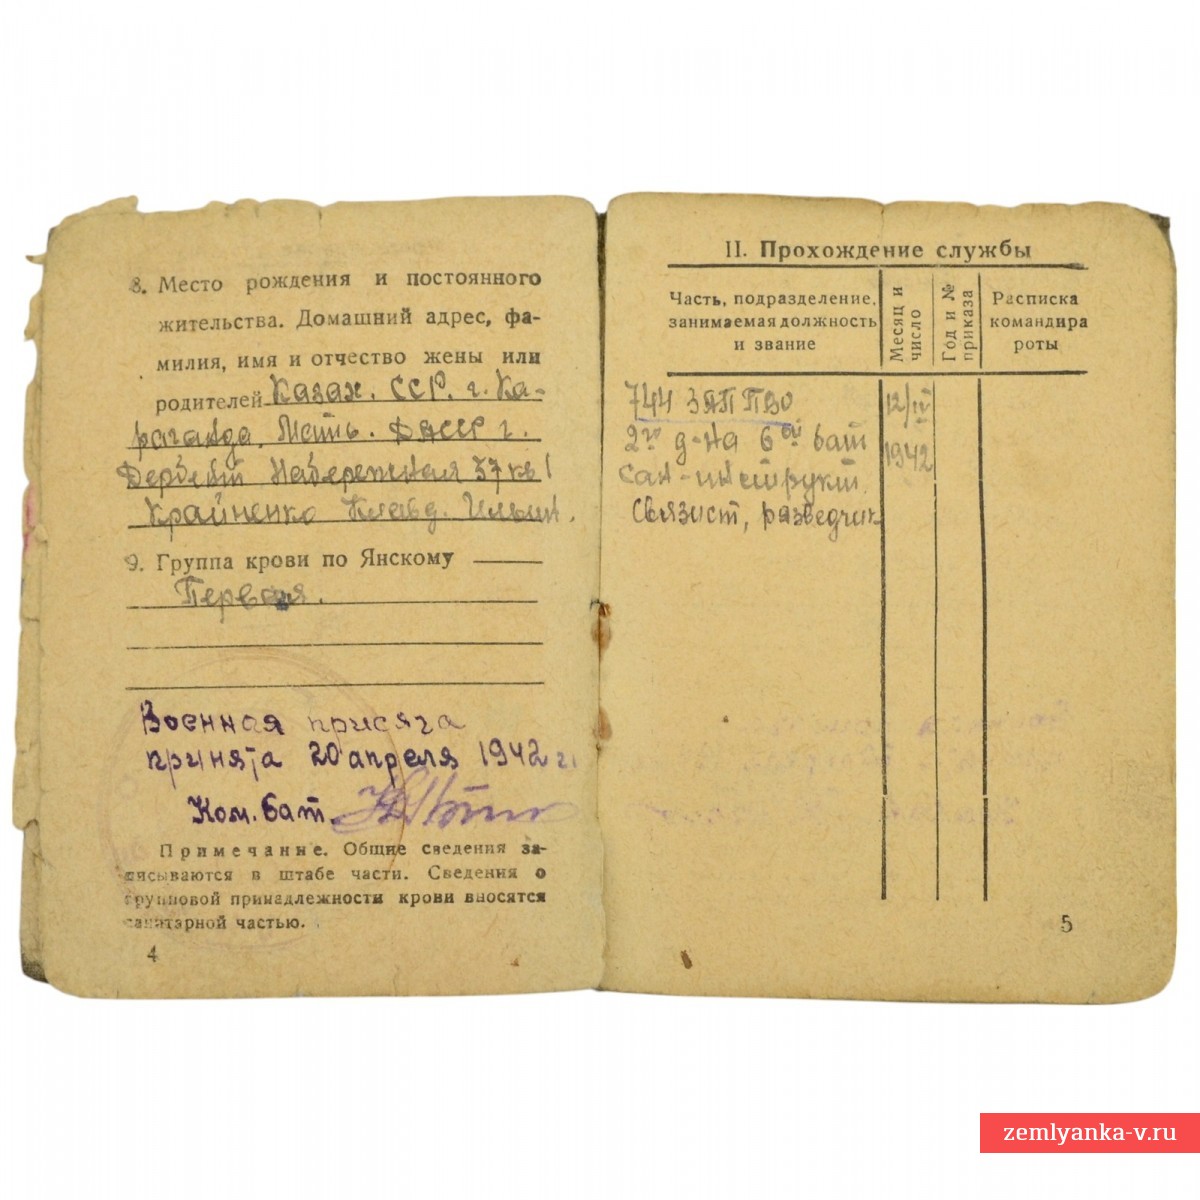 8. Место рождения и постоянного
жительства. Домашний адрес, фа-
милия, имя и отчество жены или
родителей Казах. ССР. г. Ка-
раганда. Мать. ДАССР г.
Дербент Набережная 37 кв 1
Крайненко Клавд. Ильин.
9. Группа крови по Янскому
Первая.
Военная присяга
принята 20 апреля 1942 г.
Ком. бат.
Примечание. Общие сведения за-
писываются в штабе части. Сведения о
групповой принадлежности крови вносятся
санитарной частью.
4
II. Прохождение службы
Часть, подразделение,
занимаемая должность
и звание
Месяц и
число
Год и №
приказа
Расписка
командира
роты
744 ЗАП ПВО
12/IV
2го д-на 6ой бат
1942
сан-инструкт.
Связист, разведчик
5
zemlyanka-v.ru